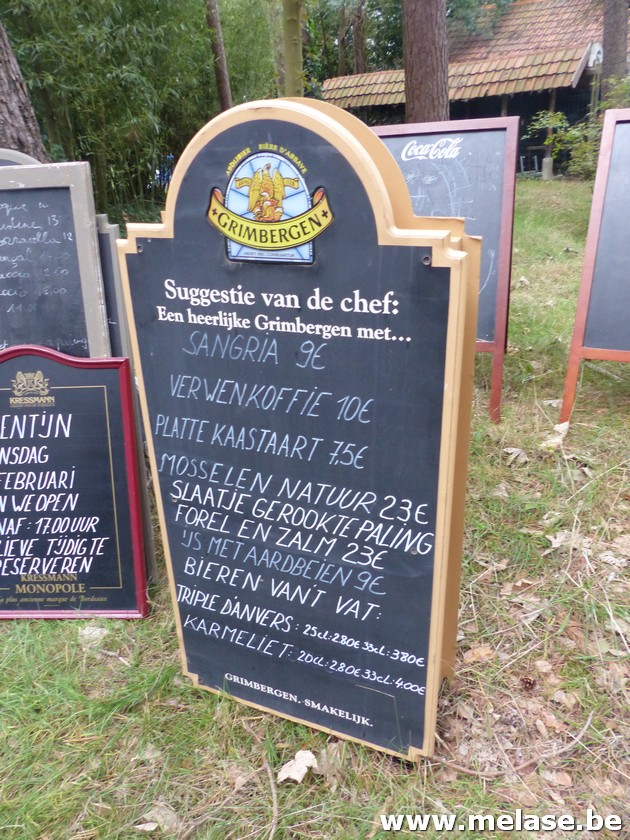 ABDIJBIER BIÈRE D'ABBAYE
GRIMBERGEN
Suggestie van de chef:
Een heerlijke Grimbergen met...
SANGRIA 9€
VERWENKOFFIE 10€
PLATTE KAASTAART 7,5€
MOSSELEN NATUUR 23€
SLAATJE GEROOKTE PALING
FOREL EN ZALM 23€
'IJS MET AARDBEIEN 9€
BIEREN VAN'T VAT:
TRIPLE D'ANVERS: 25cl: 2.80€ 33cl: 3.80€
KARMELIET: 20cl: 2.80€ 33cl: 4.00€
GRIMBERGEN. SMAKELIJK.
Coca-Cola
KRESSMANN
ENTIJN
NSDAG
FEBRUARI
N WE OPEN
NAF: 17.00 UUR
LIEVE TIJDIG TE
RESERVEREN
KRESSMANN
MONOPOLE
plus ancienne marque de Bordeaux
www.melase.be